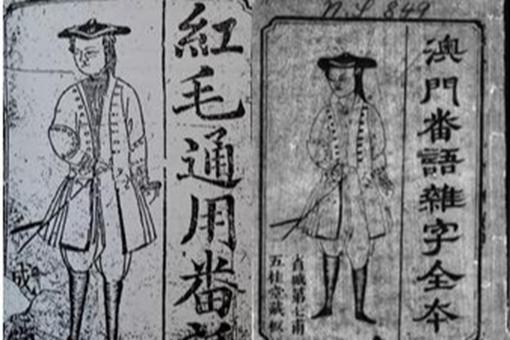 紅毛通用番
成
N.S 849
澳門番語雜字全本
省城第七甫
五桂堂藏板